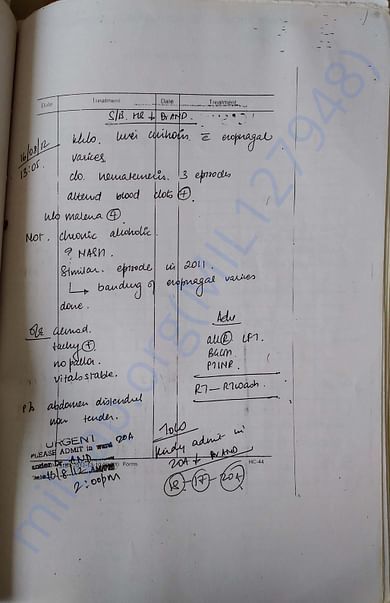 Date Treatment Date Treatment
S/B. MR ↓ Dr AND.
16/08/12
13:05.
k/c/o. liver cirrhosis c̄ esophageal
varices
c/o. hematemesis. 3 episodes
altered blood clots (+)
h/o malena (+)
Not. chronic alcoholic.
? NASH.
Similar. episode in 2011.
↳ banding of esophageal varices
done.
O/E
tachy (+)
no pallor.
Vitals stable.
P/A abdomen distended
non tender.
Adv
LFT.
PTINR
RT — RT wash.
URGENT
PLEASE ADMIT in ward 20A
under Dr AND
16/8/12
2:00pm
Kindly admit in
20A ↓ Dr AND
18 - 17 - 20A
Forms
HC-44
milaap.org(MIL127948)